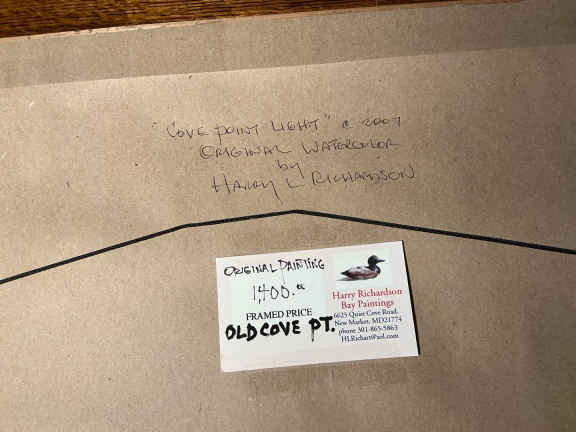 "COVE POINT LIGHT" © 2007
ORIGINAL WATERCOLOR
by
HARRY L RICHARDSON
ORIGINAL PAINTING
1,400.00
FRAMED PRICE
OLD COVE PT.
Harry Richardson
Bay Paintings
6625 Quiet Cove Road.
New Market, MD21774
phone 301-865-5863
HLRichart@aol.com